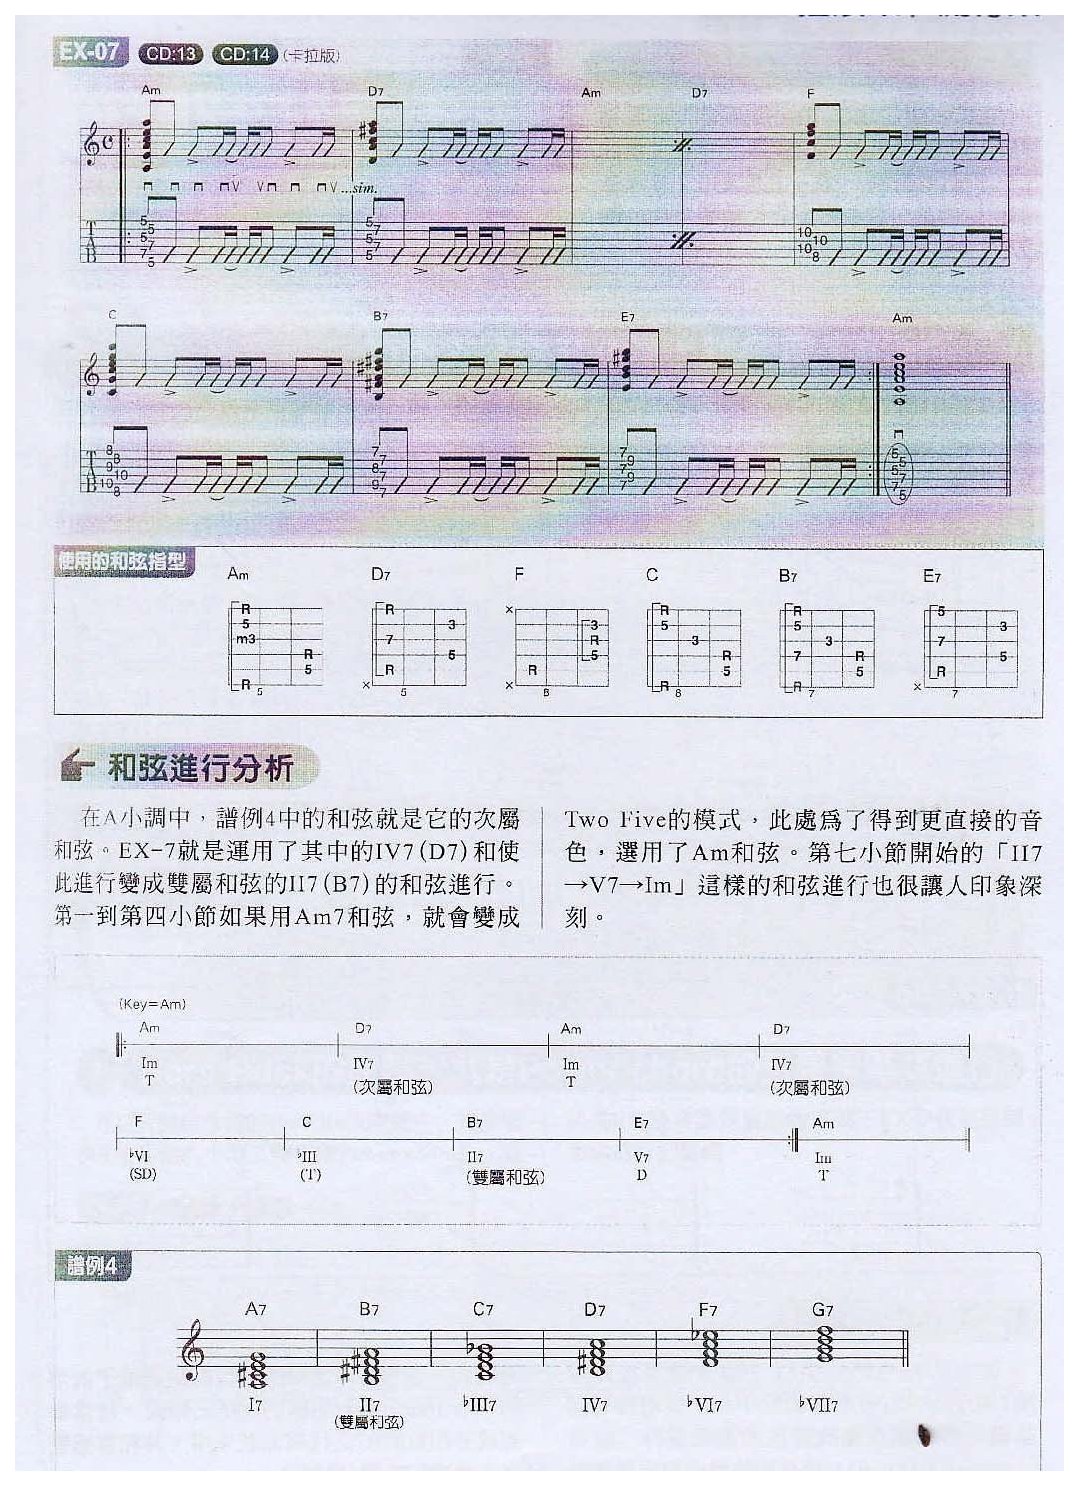 EX-07 CD:13 CD:14 (卡拉版)
Am D7 Am D7 F
...sim.
C B7 E7 Am
使用的和弦指型
Am D7 F C B7 E7
和弦進行分析
在A小調中，譜例4中的和弦就是它的次屬
和弦。EX-7就是運用了其中的IV7(D7)和使
此進行變成雙屬和弦的II7(B7)的和弦進行。
第一到第四小節如果用Am7和弦，就會變成
Two Five的模式，此處爲了得到更直接的音
色，選用了Am和弦。第七小節開始的「II7
→V7→Im」這樣的和弦進行也很讓人印象深
刻。
(Key=Am)
Am D7 Am D7
Im IV7 Im IV7
T (次屬和弦) T (次屬和弦)
F C B7 E7 Am
♭VI ♭III II7 V7 Im
(SD) (T) (雙屬和弦) D T
譜例4
A7 B7 C7 D7 F7 G7
I7 II7 ♭III7 IV7 ♭VI7 ♭VII7
(雙屬和弦)